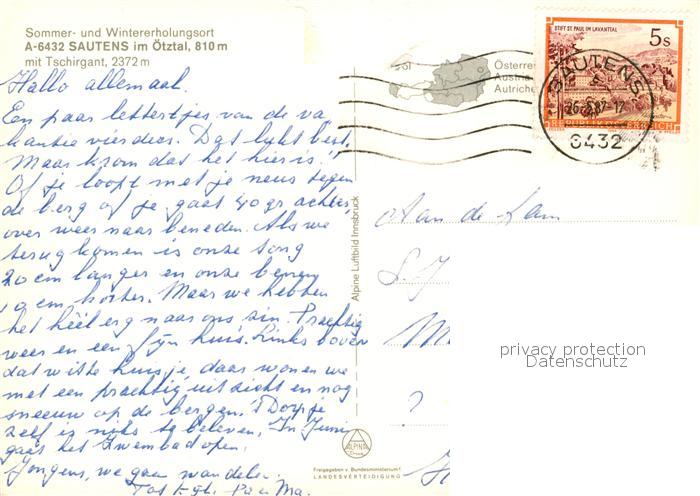 Sommer- und Wintererholungsort
A-6432 SAUTENS im Ötztal, 810 m
mit Tschirgant, 2372 m
Hallo allemaal.
Een paar lettertjes van de va
kantie vierders. Dat lukt best.
Maar krom dat het hier is!
Of je loopt met je neus tegen
de berg of je gaat 40 gr achter
over weer naar beneden. Als we
terug komen is onze tong
20 cm langer en onze benen
10 cm korter. Maar we hebben
het héél erg naar ons zin. Prachtig
weer en een fijn huis. Links boven
dat witte huisje, daar wonen we
met een prachtig uitzicht en nog
sneeuw op de bergen. 't Dorpje
zelf is niks te beleven. In Juni
gaat het Zwembad open.
Jongens, we gaan wandelen.
Tot kijk. Pa en Ma.
Alpine Luftbild Innsbruck
Österre
Austria
Autriche
STIFT ST. PAUL IM LAVANTTAL
5s
REPUBLIK ÖSTERREICH
SAUTENS
87-17
6432
Aan de Lam
S. J
M
?
privacy protection
Datenschutz
ALPINE
Freigegeben v. Bundesministerium f.
LANDESVERTEIDIGUNG